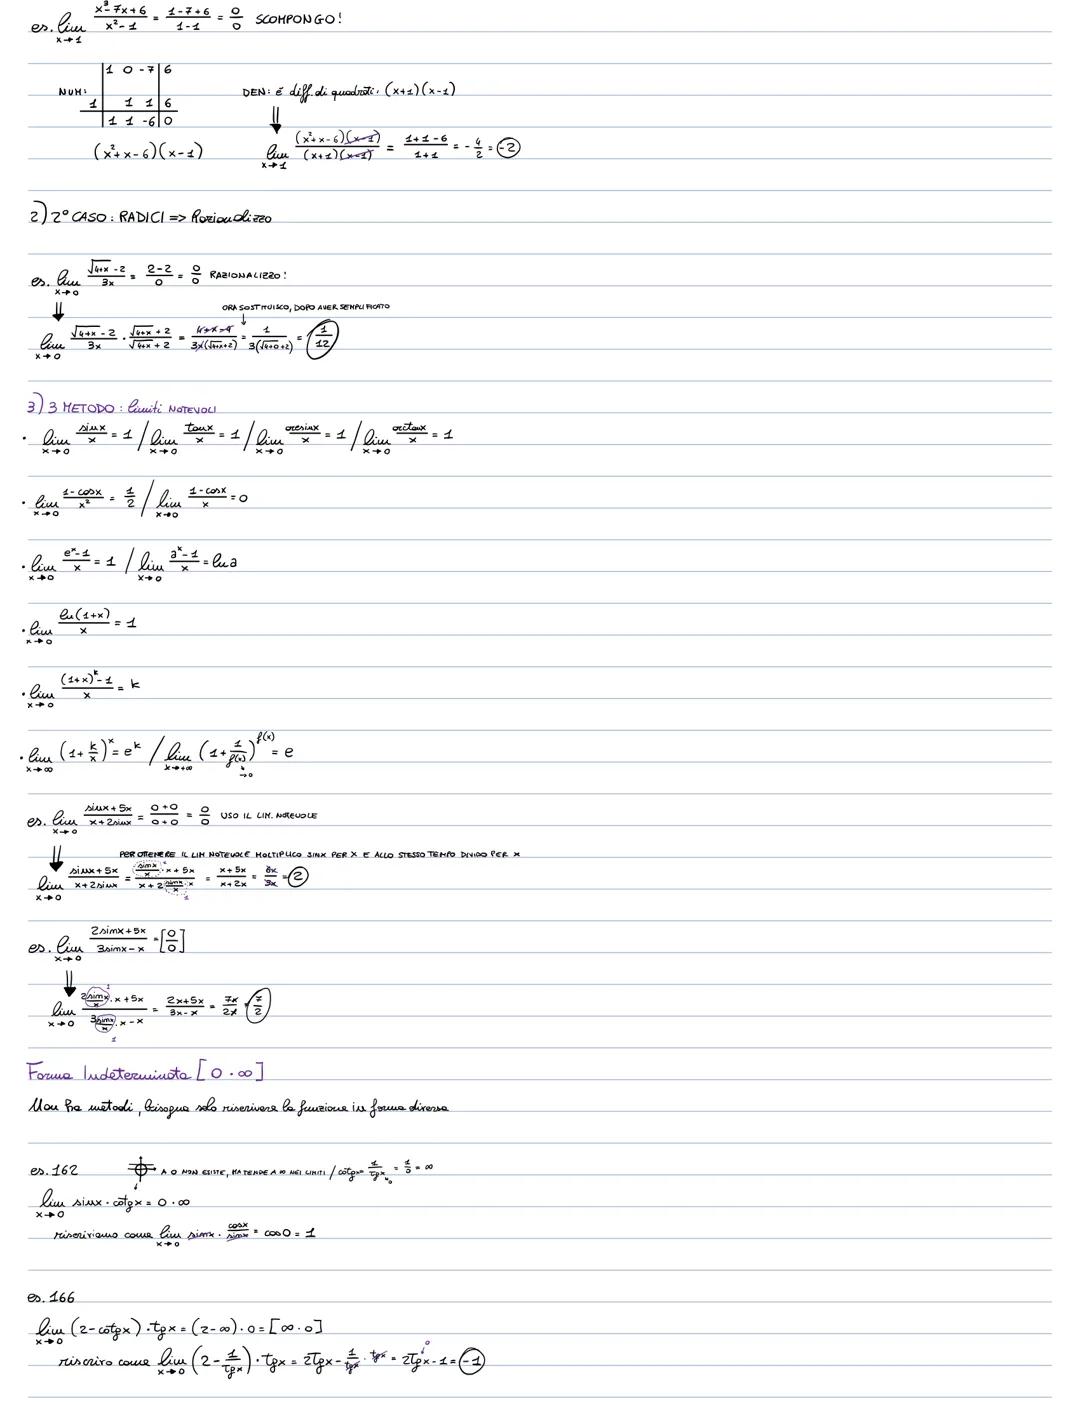 es. lim x→1 (x³-7x+6)/(x²-1) = (1-7+6)/(1-1) = 0/0 SCOMPONGO!
1 0 -7 | 6
NUM: DEN: è diff. di quadrati: (x+1)(x-1)
1 | 1 1 | 6
1 1 -6 | 0
(x²+x-6)(x-1) lim x→1 (x²+x-6)(x-1)/(x+1)(x-1) = (1+1-6)/(1+1) = -4/2 = -2
2) 2° CASO: RADICI => Razionalizzo
es. lim x→0 (√(4+x) -2)/3x = (2-2)/0 = 0/0 RAZIONALIZZO!
ORA SOSTITUISCO, DOPO AVER SEMPLIFICATO
lim x→0 (√(4+x) -2)/3x · (√(4+x) +2)/(√(4+x) +2) = (4+x-4)/3x(√(4+x)+2) = 1/3(√(4+0)+2) = 1/12
3) 3 METODO: limiti NOTEVOLI
· lim x→0 sinx/x = 1 / lim x→0 tanx/x = 1 / lim x→0 arcsinx/x = 1 / lim x→0 arctanx/x = 1
· lim x→0 (1-cosx)/x² = 1/2 / lim x→0 (1-cosx)/x = 0
· lim x→0 (eˣ-1)/x = 1 / lim x→0 (aˣ-1)/x = ln a
· lim x→0 ln(1+x)/x = 1
· lim x→0 ((1+x)ᵏ-1)/x = k
· lim x→∞ (1+k/x)ˣ = eᵏ / lim x→+∞ (1+1/f(x))^f(x) = e
→0
es. lim x→0 (sinx+5x)/(x+2sinx) = (0+0)/(0+0) = 0/0 USO IL LIM. NOTEVOLE
PER OTTENERE IL LIM NOTEVOLE MOLTIPLICO SINX PER X E ALLO STESSO TEMPO DIVIDO PER X
lim x→0 (sinx+5x)/(x+2sinx) = (sinx/x · x+5x)/(x+2 sinx/x · x) = (x+5x)/(x+2x) = 6x/3x = 2
es. lim x→0 (2sinx+5x)/(3sinx-x) = [0/0]
lim x→0 (2 sinx/x · x+5x)/(3 sinx/x · x-x) = (2x+5x)/(3x-x) = 7x/2x = 7/2
Forma Indeterminata [0·∞]
Non ha metodi, bisogna solo riscrivere la funzione in forma diversa
es. 162 A 0 NON ESISTE, MA TENDE A ∞ NEI LIMITI / cotgx = 1/tgx = 1/0 = ∞
lim x→0 sinx · cotgx = 0·∞
riscriviamo come lim x→0 sinx · cosx/sinx = cos0 = 1
es. 166
lim x→0 (2-cotgx)·tgx = (2-∞)·0 = [∞·0]
riscrivo come lim x→0 (2-1/tgx)·tgx = 2tgx-1/tgx · tgx = 2tgx-1 = -1